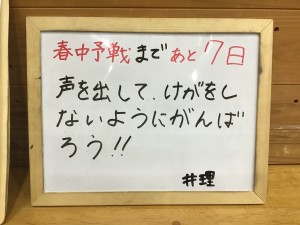 春中予戦まであと7日
声を出して、けがをし
ないようにがんば
ろう!!
井理